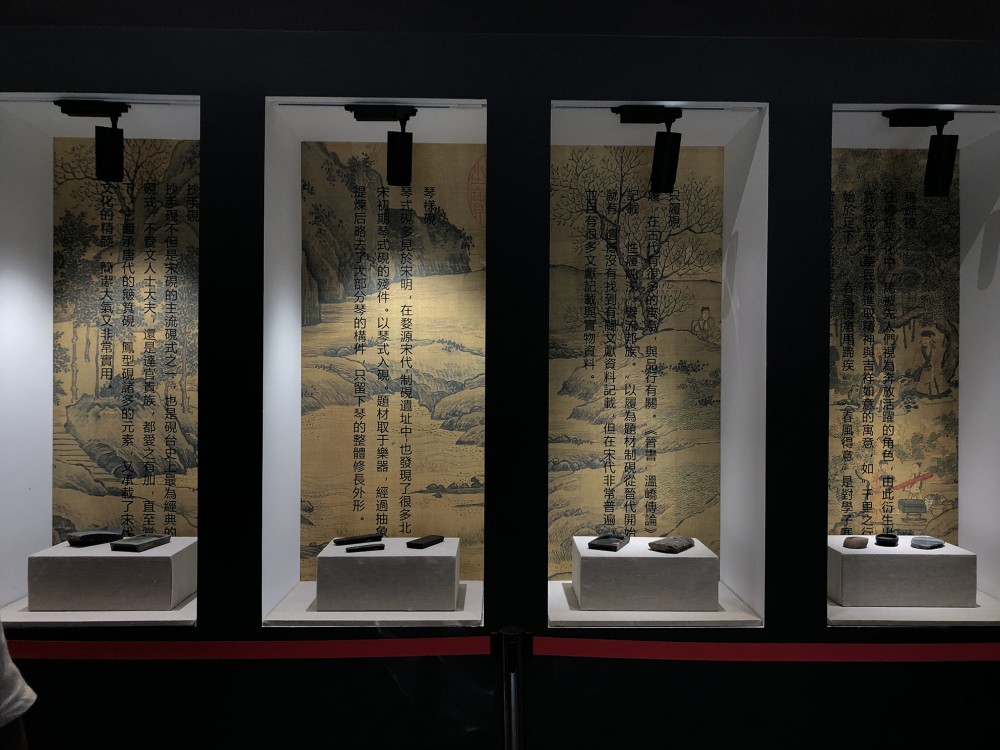 抄手硯
抄手硯不但是宋硯的主流硯式之一，也是硯台史上最為經典的
硯式，不管文人士大夫，還是達官貴族，都愛之有加，直至
下，它繼承唐代的簸箕硯、鳳型硯諸多的元素，又承載了宋
文化的精髓，簡潔大氣又非常實用。
琴樣硯
琴式硯多見於宋明，在婺源宋代制硯遺址中，也發現了很多北
宋初期琴式硯的殘件。以琴式入硯，題材取于樂器，經過抽象
提煉后略去了大部分琴的構件，只留下琴的整體修長外形。
只履硯
履，在古代有很多的寓意，與品行有關。《晉書 溫嶠傳論》
記載 性履純深，譽流邦族。”以履為題材制硯從晉代開始
就有，這還沒有找到有關文獻資料記載，但在宋代非常普遍
並且有很多文獻記載與實物資料。
在 文化中， 被先人們視為奔放活躍的角色，由此衍生出
許多代表中華民族進取精神與吉祥如意的寓意，如“千里之行
始於足下”、“春風得意馬蹄疾”。《春風得意》是對學子寒